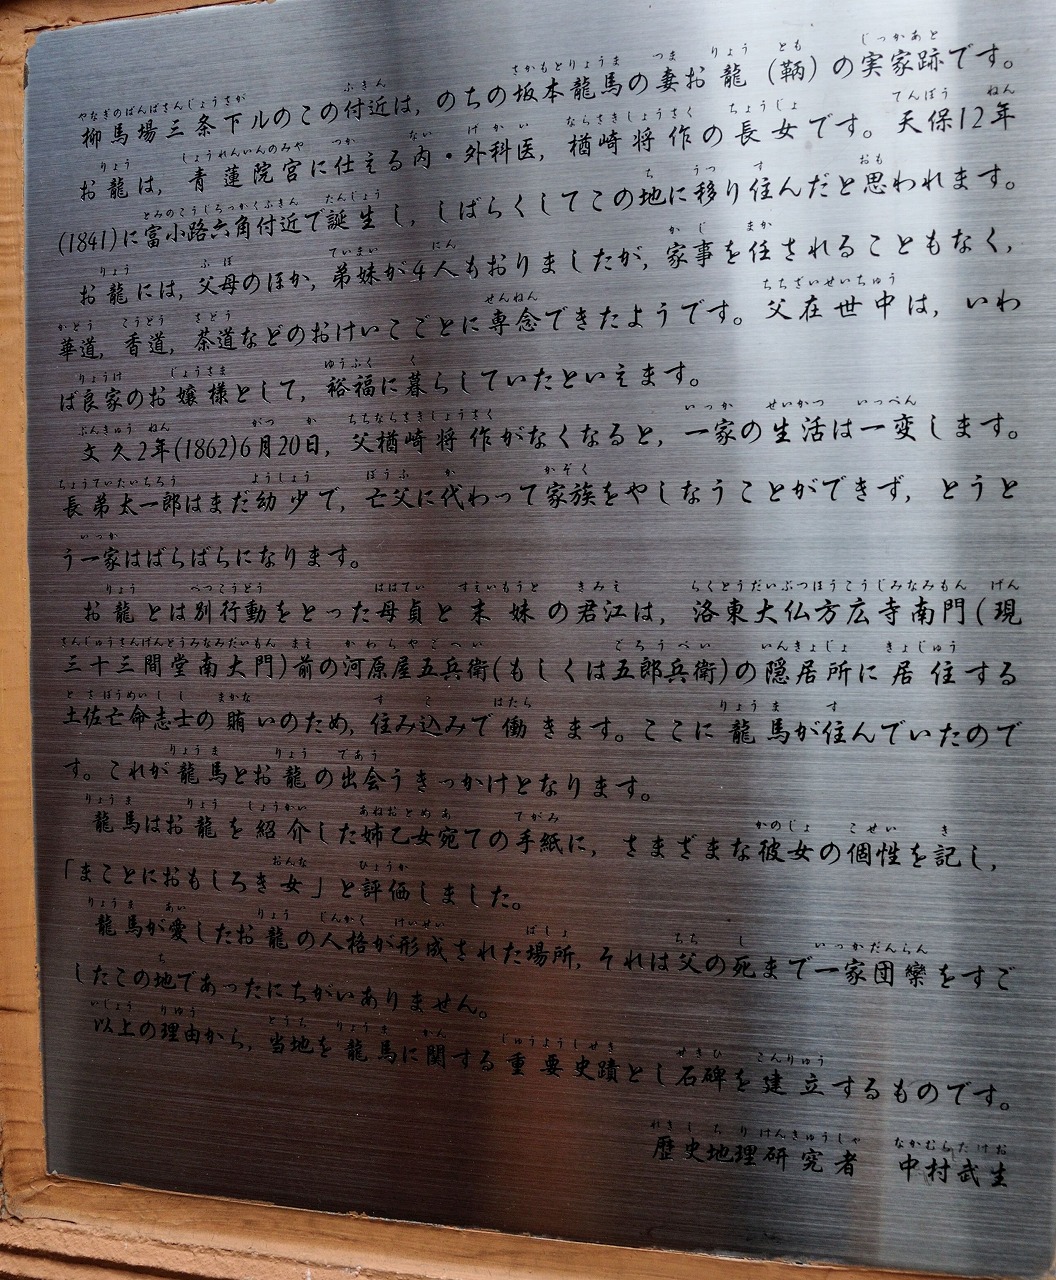 柳馬場三条下ルのこの付近は，のちの坂本龍馬の妻お龍（鞆）の実家跡です。
お龍は，青蓮院宮に仕える内・外科医，楢崎将作の長女です。天保12年
(1841)に富小路六角付近で誕生し，しばらくしてこの地に移り住んだと思われます。
お龍には，父母のほか，弟妹が4人もおりましたが，家事を任されることもなく，
華道，香道，茶道などのおけいこごとに専念できたようです。父在世中は，いわ
ば良家のお嬢様として，裕福に暮らしていたといえます。
文久2年(1862)6月20日，父楢崎将作がなくなると，一家の生活は一変します。
長弟太一郎はまだ幼少で，亡父に代わって家族をやしなうことができず，とうと
う一家はばらばらになります。
お龍とは別行動をとった母貞と末妹の君江は，洛東大仏方広寺南門(現
三十三間堂南大門)前の河原屋五兵衛(もしくは五郎兵衛)の隠居所に居住する
土佐亡命志士の賄いのため，住み込みで働きます。ここに龍馬が住んでいたので
す。これが龍馬とお龍の出会うきっかけとなります。
龍馬はお龍を紹介した姉乙女宛ての手紙に，さまざまな彼女の個性を記し，
「まことにおもしろき女」と評価しました。
龍馬が愛したお龍の人格が形成された場所，それは父の死まで一家団欒をすご
したこの地であったにちがいありません。
以上の理由から，当地を龍馬に関する重要史蹟とし石碑を建立するものです。
歴史地理研究者　中村武生